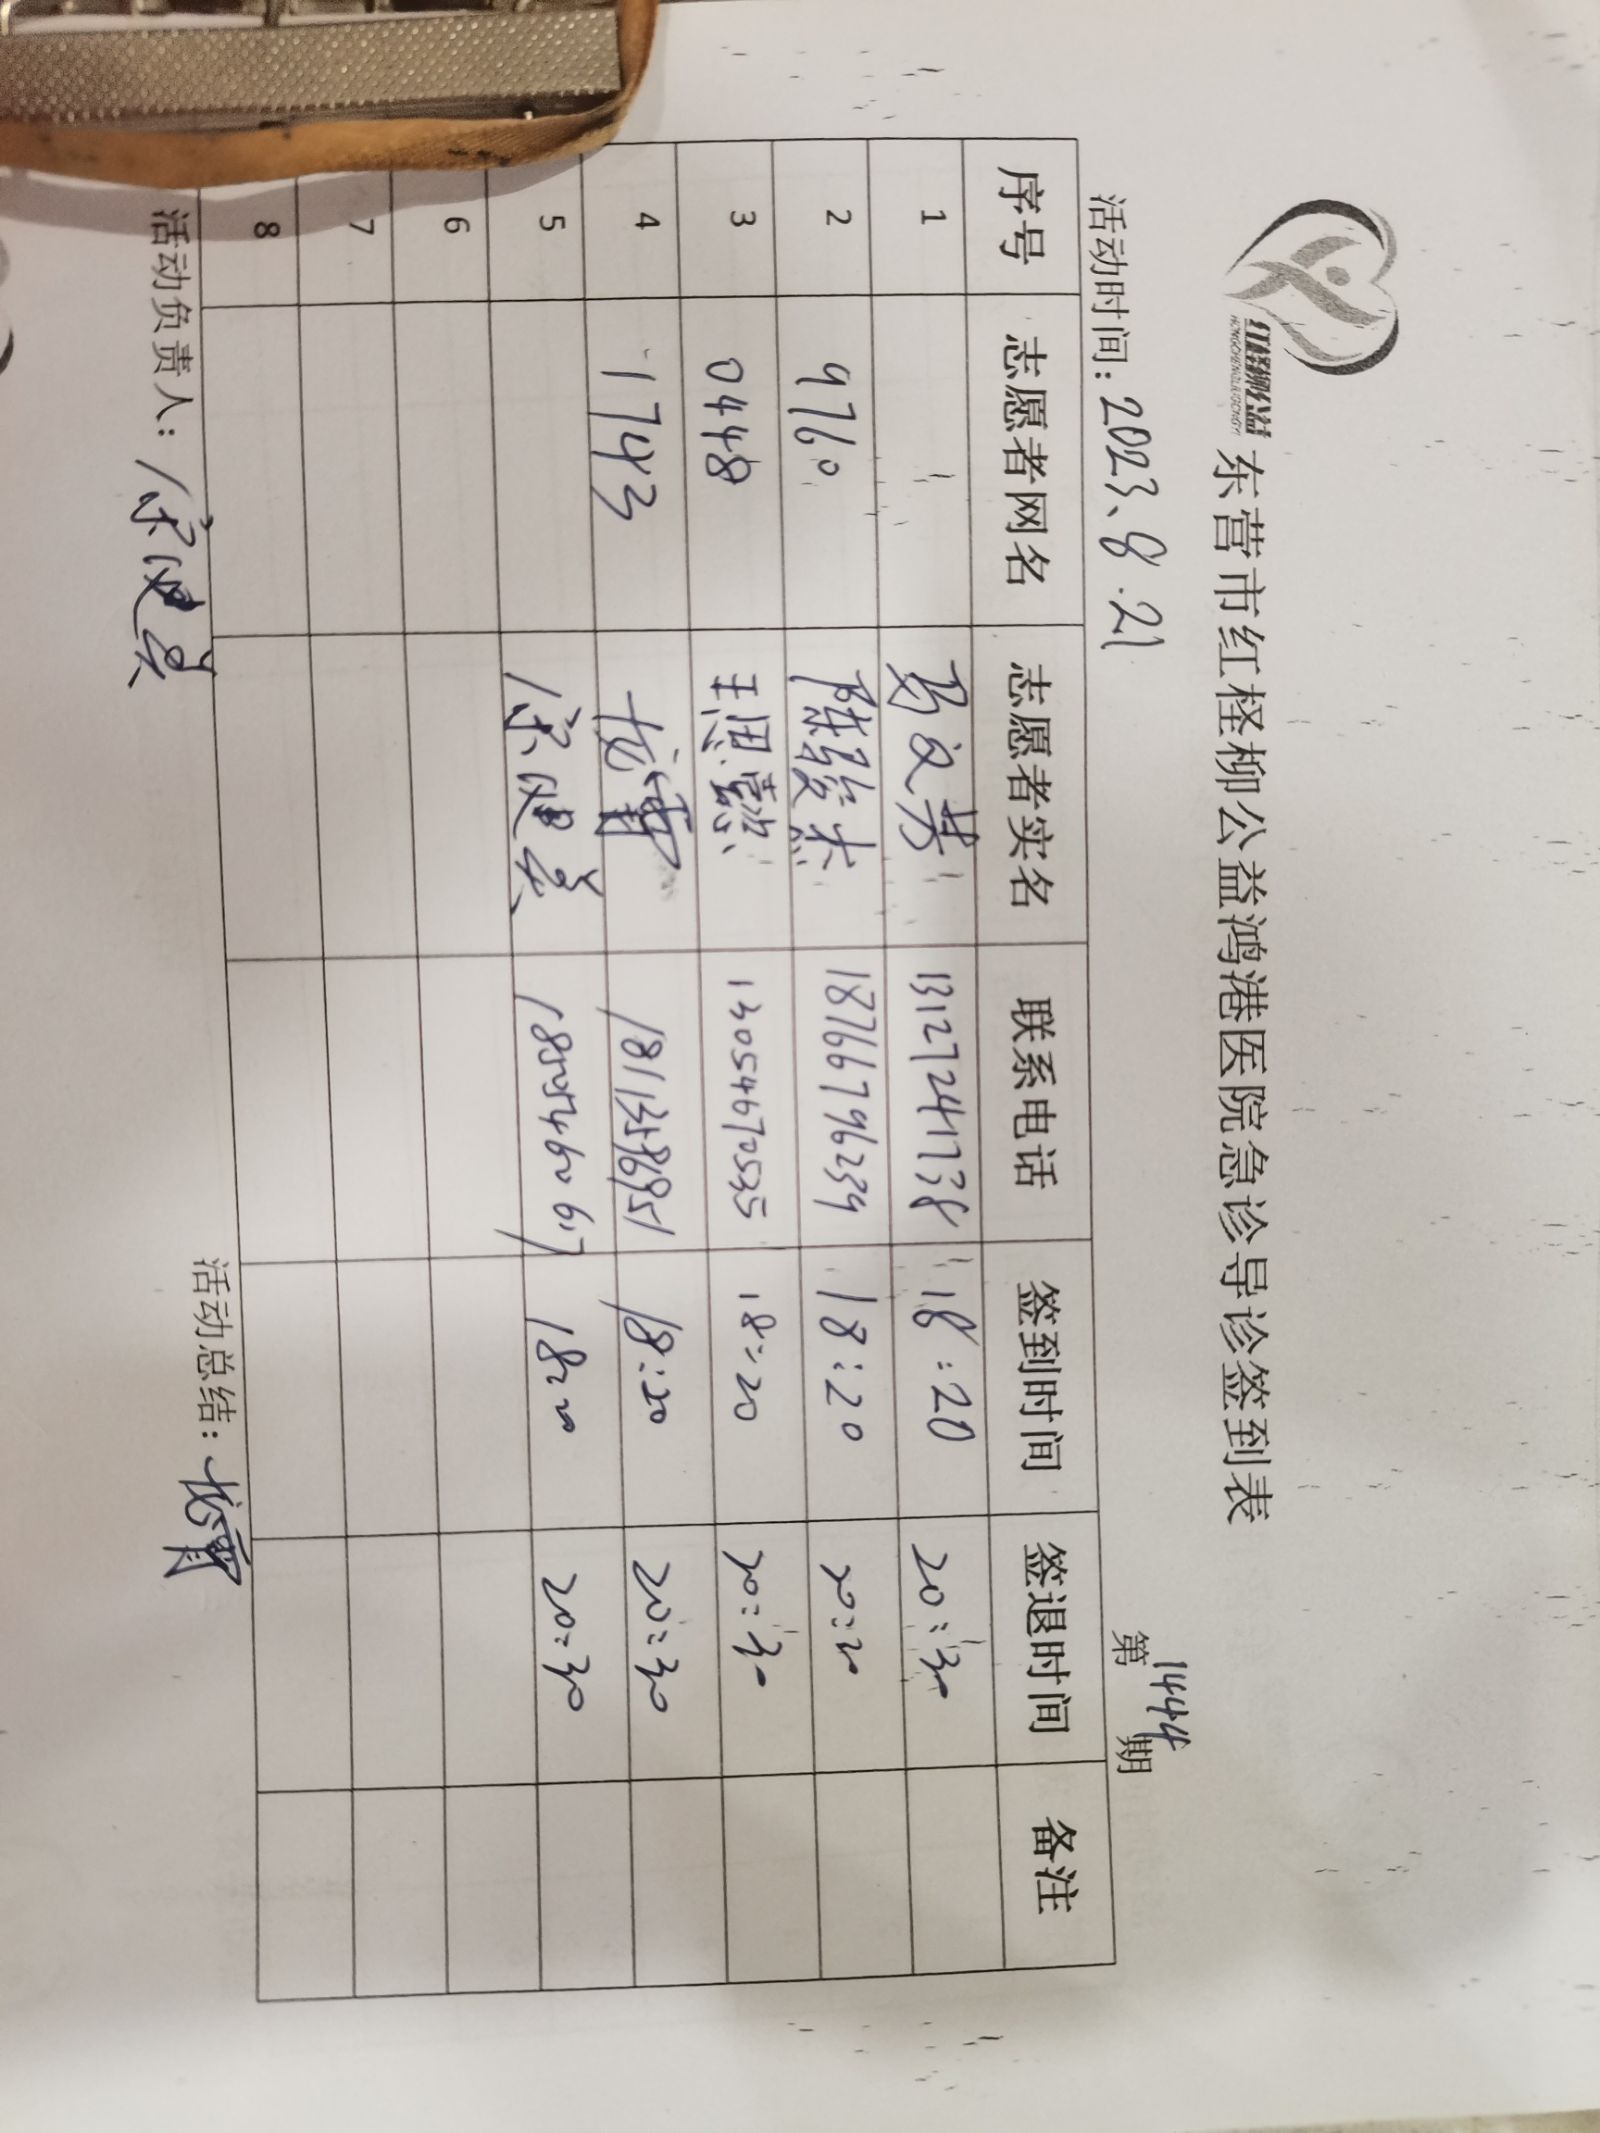 东营市红柽柳公益鸿港医院急诊导诊签到表
活动时间：2023、8.21 第1444期
序号 志愿者网名 志愿者实名 联系电话 签到时间 签退时间 备注
1 葛文芳 13127241738 18:20 20:30
2 9760 陈骏杰 18766796239 18:20 20:30
3 0448 王恩熹 13054670535 18:20 20:30
4 1743 18:20 20:30
5 18:20 20:30
6
7
8
活动负责人： 活动总结：